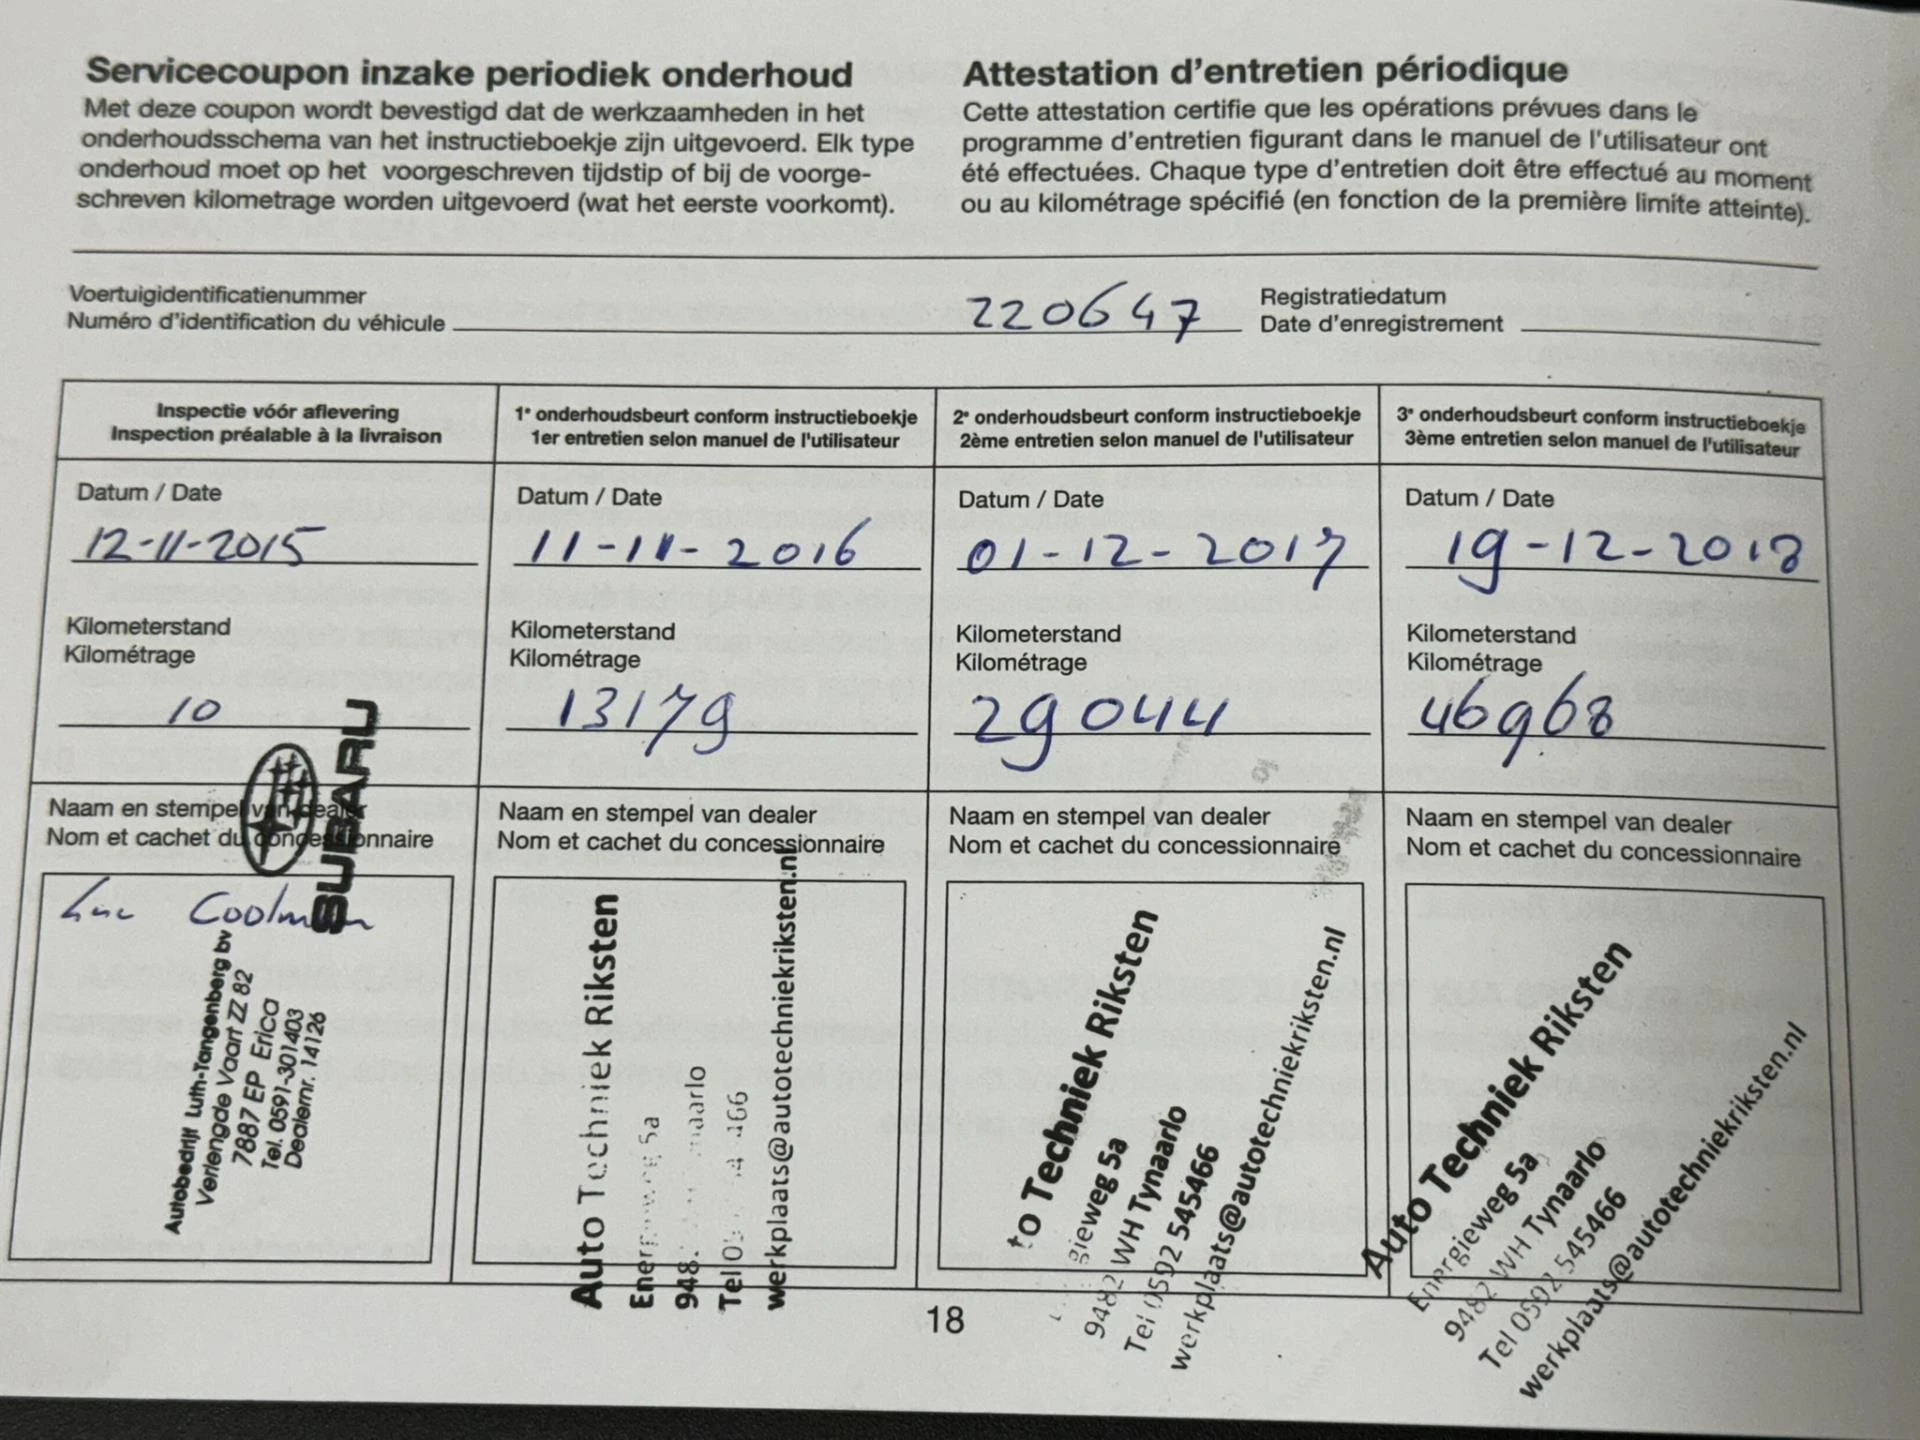 Servicecoupon inzake periodiek onderhoud
Met deze coupon wordt bevestigd dat de werkzaamheden in het
onderhoudsschema van het instructieboekje zijn uitgevoerd. Elk type
onderhoud moet op het voorgeschreven tijdstip of bij de voorge-
schreven kilometrage worden uitgevoerd (wat het eerste voorkomt).
Attestation d'entretien périodique
Cette attestation certifie que les opérations prévues dans le
programme d'entretien figurant dans le manuel de l'utilisateur ont
été effectuées. Chaque type d'entretien doit être effectué au moment
ou au kilométrage spécifié (en fonction de la première limite atteinte).
Voertuigidentificatienummer
Numéro d'identification du véhicule 220647
Registratiedatum
Date d'enregistrement
Inspectie vóór aflevering
Inspection préalable à la livraison
Datum / Date
12-11-2015
Kilometerstand
Kilométrage
10
Naam en stempel van dealer
Nom et cachet du concessionnaire
SUBARU
Luc Coolman
Autobedrijf Luth-Tangenberg bv
Verlengde Vaart ZZ 82
7887 EP Erica
Tel. 0591-301403
Dealernr. 14126
1e onderhoudsbeurt conform instructieboekje
1er entretien selon manuel de l'utilisateur
Datum / Date
11-11-2016
Kilometerstand
Kilométrage
13179
Naam en stempel van dealer
Nom et cachet du concessionnaire
Auto Techniek Riksten
5a
werkplaats@autotechniekriksten.nl
2e onderhoudsbeurt conform instructieboekje
2ème entretien selon manuel de l'utilisateur
Datum / Date
01-12-2017
Kilometerstand
Kilométrage
29044
Naam en stempel van dealer
Nom et cachet du concessionnaire
to Techniek Riksten
gieweg 5a
9482 WH Tynaarlo
Tel 0592 545466
werkplaats@autotechniekriksten.nl
3e onderhoudsbeurt conform instructieboekje
3ème entretien selon manuel de l'utilisateur
Datum / Date
19-12-2018
Kilometerstand
Kilométrage
46968
Naam en stempel van dealer
Nom et cachet du concessionnaire
Auto Techniek Riksten
Energieweg 5a
9482 WH Tynaarlo
Tel 0592 545466
werkplaats@autotechniekriksten.nl
18